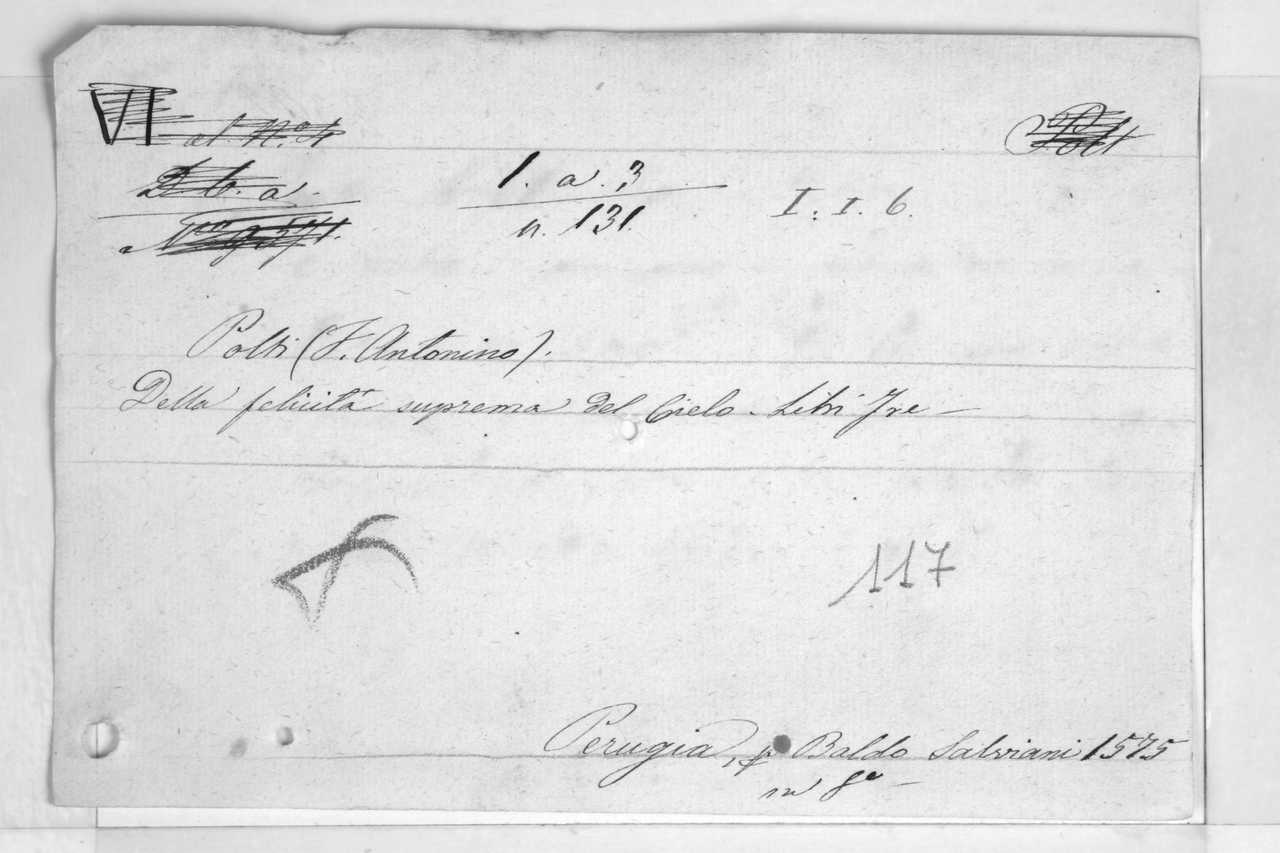 VI
Polt
1. a. 3
n. 131.
I. I. 6.
Polti (F. Antonino).
Della felicità suprema del Cielo. Libri Tre —
117
Perugia, p Baldo Salviani 1575
in 8º —